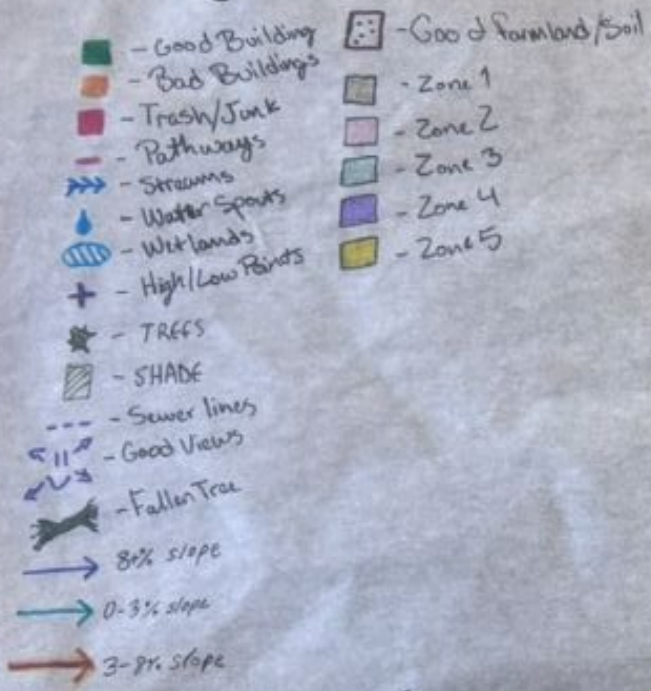 - Good Building
- Bad Buildings
- Trash/Junk
- Pathways
- Streams
- Water Spouts
- Wetlands
- High/Low Points
- TREES
- SHADE
- Sewer lines
- Good Views
- Fallen Tree
8+% slope
0-3% slope
3-8% slope
- Good farmland/Soil
- Zone 1
- Zone 2
- Zone 3
- Zone 4
- Zone 5